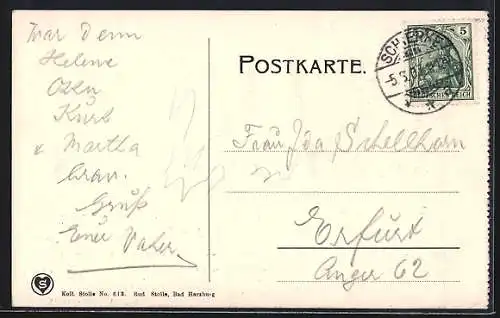 War denn
Helene
Otto
Kurt
u Martha
Gruß
Euer Vater.
POSTKARTE.
SCHIERKE
5
DEUTSCHES REICH
Frau Ida Schellhorn
in
Erfurt
Anger 62
S
Koll. Stolle No. 613. Rud. Stolle, Bad Harzburg